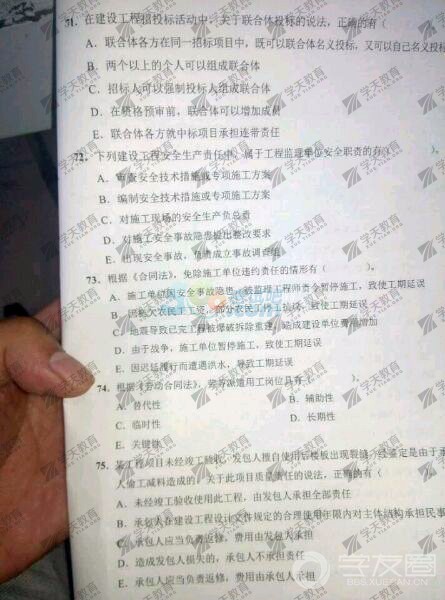 71. 在建设工程招投标活动中，关于联合体投标的说法，正确的有（
A、联合体各方在同一招标项目中，既可以联合体名义投标，又可以自己名义投标
B、两个以上的个人可以组成联合体
C、招标人可以强制投标人组成联合体
D、在资格预审前，联合体可以增加成员
E、联合体各方就中标项目承担连带责任
72. 下列建设工程安全生产责任中，属于工程监理单位安全职责的有（ ）。
A、审查安全技术措施或专项施工方案
B、编制安全技术措施或专项施工方案
C、对施工现场的安全生产负总责
D、对施工安全事故隐患提出整改要求
E、出现安全事故，负责成立事故调查组
73. 根据《合同法》，免除施工单位违约责任的情形有（ ）。
A、施工单位因安全事故隐患，被监理工程师责令暂停施工，致使工期延误
B、因拖欠农民工工资，部分农民工停工抗议，致使工期延误
C、地震导致已完工程被爆破拆除重建，造成建设单位费用增加
D、由于战争，施工单位暂停施工，致使工期延误
E、因迟延履行而遭遇洪水，导致工期延误
74. 根据《劳动合同法》，劳务派遣用工岗位具有（ ）。
A、替代性
B、辅助性
C、临时性
D、长期性
E、关键性
75. 某工程项目未经竣工验收，发包人擅自使用后楼板出现裂缝，经鉴定是由于承
人偷工减料造成的，关于此项目质量责任的说法，正确的有（
A、未经竣工验收使用此工程，由发包人承担全部责任
B、承包人在建设工程设计文件规定的合理使用年限内对主体结构承担民事
C、承包人应当负责返修，费用由发包人承担
D、造成发包人损失的，承包人不承担责任
E、承包人应当负责返修，费用由承包人承担
学天教育
学友圈
BBS.XUETIAN.CN